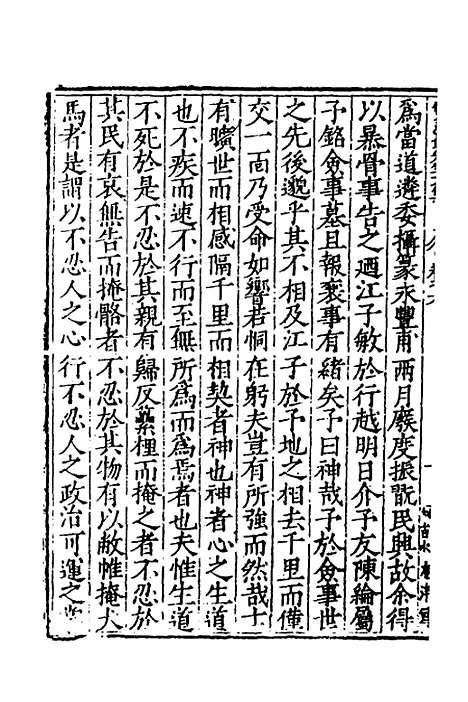 爲當道遴委攝篆永豐甫兩月廢度振翫民興故余得
以暴骨事告之廼江子敏於行越明日介予友陳綸屬
予銘僉事墓且報襄事有緒矣予曰神哉予於僉事世
之先後邈乎其不相及江子於予地之相去千里而僅
交一面乃受命如響若恫在躬夫豈有所強而然哉士
有曠世而相感隔千里而相契者神也神者心之生道
也不疾而速不行而至無所爲而爲焉者也夫惟生道
不死於是不忍於其親有歸反虆梩而掩之者不忍於
其民有哀無告而掩骼者不忍於其物有以敝帷掩犬
馬者是謂以不忍人之心行不忍人之政治可運之掌